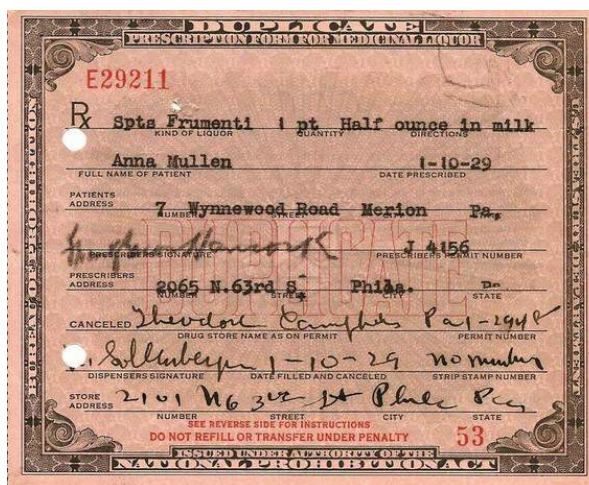 DUPLICATE
PRESCRIPTION FORM FOR MEDICINAL LIQUOR
E29211
Rx Spts Frumenti 1 pt Half ounce in milk
KIND OF LIQUOR QUANTITY DIRECTIONS
Anna Mullen 1-10-29
FULL NAME OF PATIENT DATE PRESCRIBED
PATIENTS
ADDRESS 7 Wynnewood Road Merion Pa.
NUMBER STREET
Hancock J 4156
PRESCRIBERS SIGNATURE PRESCRIBERS PERMIT NUMBER
DUPLICATE
PRESCRIBERS
ADDRESS 2065 N.63rd S. Phila. Pa
NUMBER STREET CITY STATE
CANCELED Theodore Campbell Pa 1-2948
DRUG STORE NAME AS ON PERMIT
Sollenberger 1-10-29 no number
DISPENSERS SIGNATURE DATE FILLED AND CANCELED STRIP STAMP NUMBER
STORE
ADDRESS 2101 N 63rd St Phila Pa
NUMBER STREET CITY STATE
SEE REVERSE SIDE FOR INSTRUCTIONS
DO NOT REFILL OR TRANSFER UNDER PENALTY 53
ISSUED UNDER AUTHORITY OF THE
NATIONAL PROHIBITION ACT